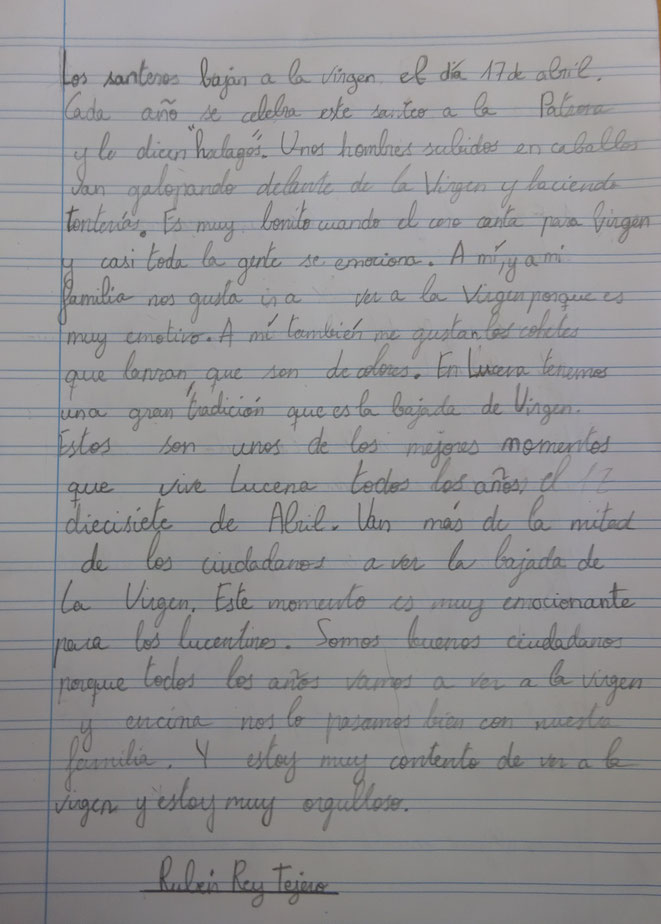 Los santeros bajan a la virgen el día 17 de abril.
Cada año se celebra este santeo a la Patrona
y lo dicen "halagos". Unos hombres subidos en caballos
van galopando delante de la Virgen y haciendo
tonterías. Es muy bonito cuando el coro canta para Virgen
y casi toda la gente se emociona. A mí, y a mi
familia nos gusta ir a ver a la Virgen porque es
muy emotivo. A mí también me gustan los cohetes
que lanzan, que son de colores. En Lucena tenemos
una gran tradición que es la bajada de Virgen.
Estos son unos de los mejores momentos
que vive Lucena todos los años, el 17
diecisiete de Abril. Van más de la mitad
de los ciudadanos a ver la bajada de
La Virgen. Este momento es muy emocionante
para los lucentinos. Somos buenos ciudadanos
porque todos los años vamos a ver a la virgen
y encima nos lo pasamos bien con nuestra
familia. Y estoy muy contento de ver a la
virgen y estoy muy orgulloso.
Rubén Rey Tejero